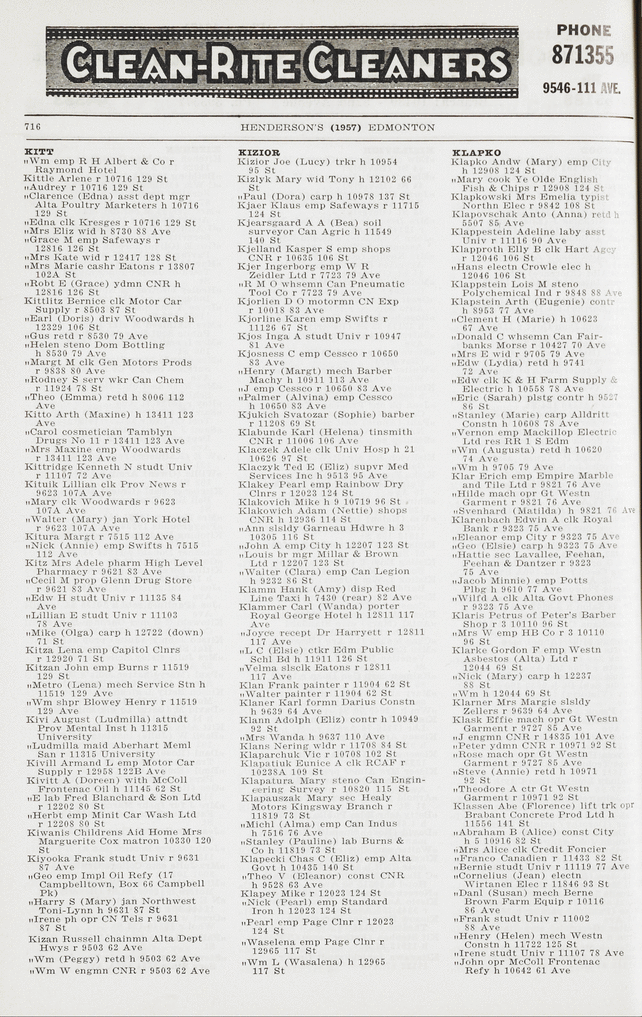 CLEAN-RITE CLEANERS
PHONE
871355
9546-111 AVE.
716
HENDERSON'S (1957) EDMONTON
KITT
"Wm emp R H Albert & Co r
Raymond Hotel
Kittle Arlene r 10716 129 St
"Audrey r 10716 129 St
"Clarence (Edna) asst dept mgr
Alta Poultry Marketers h 10716
129 St
"Edna clk Kresges r 10716 129 St
"Mrs Eliz wid h 8730 88 Ave
"Grace M emp Safeways r
12816 126 St
"Mrs Kate wid r 12417 128 St
"Mrs Marie cashr Eatons r 13807
102A St
"Robt E (Grace) ydmn CNR h
12816 126 St
Kittlitz Bernice clk Motor Car
Supply r 8503 87 St
"Earl (Doris) driv Woodwards h
12329 106 St
"Gus retd r 8530 79 Ave
"Helen steno Dom Bottling
h 8530 79 Ave
"Margt M clk Gen Motors Prods
r 9838 80 Ave
"Rodney S serv wkr Can Chem
r 11924 78 St
"Theo (Emma) retd h 8006 112
Ave
Kitto Arth (Maxine) h 13411 123
Ave
"Carol cosmetician Tamblyn
Drugs No 11 r 13411 123 Ave
"Mrs Maxine emp Woodwards
r 13411 123 Ave
Kittridge Kenneth N studt Univ
r 11107 72 Ave
Kituik Lillian clk Prov News r
9623 107A Ave
"Mary clk Woodwards r 9623
107A Ave
"Walter (Mary) jan York Hotel
r 9623 107A Ave
Kitura Margt r 7515 112 Ave
"Nick (Annie) emp Swifts h 7515
112 Ave
Kitz Mrs Adele pharm High Level
Pharmacy r 9621 83 Ave
"Cecil M prop Glenn Drug Store
r 9621 83 Ave
"Edw H studt Univ r 11135 84
Ave
"Lillian E studt Univ r 11103
78 Ave
"Mike (Olga) carp h 12722 (down)
71 St
Kitza Lena emp Capitol Clnrs
r 12920 71 St
Kitzan John emp Burns r 11519
129 St
"Metro (Lena) mech Service Stn h
11519 129 Ave
"Wm shpr Blowey Henry r 11519
129 Ave
Kivi August (Ludmilla) attndt
Prov Mental Inst h 11315
University
"Ludmilla maid Aberhart Meml
San r 11315 University
Kivill Armand L emp Motor Car
Supply r 12958 122B Ave
Kivitt A (Doreen) with McColl
Frontenac Oil h 11145 62 St
"E lab Fred Blanchard & Son Ltd
r 12202 80 St
"Herbt emp Minit Car Wash Ltd
r 12208 80 St
Kiwanis Childrens Aid Home Mrs
Marguerite Cox matron 10330 120
St
Kiyooka Frank studt Univ r 9631
87 Ave
"Geo emp Impl Oil Refy (17
Campbelltown, Box 66 Campbell
Pk)
"Harry S (Mary) jan Northwest
Toni-Lynn h 9631 87 St
"Irene ph opr CN Tels r 9631
87 St
Kizan Russell chainmn Alta Dept
Hwys r 9503 62 Ave
"Wm (Peggy) retd h 9503 62 Ave
"Wm W engmn CNR r 9503 62 Ave
KIZIOR
Kizior Joe (Lucy) trkr h 10954
95 St
Kizlyk Mary wid Tony h 12102 66
St
"Paul (Dora) carp h 10978 137 St
Kjaer Klaus emp Safeways r 11715
124 St
Kjearsgaard A A (Bea) soil
surveyor Can Agric h 11549
140 St
Kjelland Kasper S emp shops
CNR r 10635 106 St
Kjer Ingerborg emp W R
Zeidler Ltd r 7723 79 Ave
"R M O whsemn Can Pneumatic
Tool Co r 7723 79 Ave
Kjorlien D O motormn CN Exp
r 10018 83 Ave
Kjorline Karen emp Swifts r
11126 67 St
Kjos Inga A studt Univ r 10947
81 Ave
Kjosness C emp Cessco r 10650
83 Ave
"Henry (Margt) mech Barber
Machy h 10911 113 Ave
"J emp Cessco r 10650 83 Ave
"Palmer (Alvina) emp Cessco
h 10650 83 Ave
Kjukich Svatozar (Sophie) barber
r 11208 69 St
Klabunde Karl (Helena) tinsmith
CNR r 11006 106 Ave
Klaczek Adele clk Univ Hosp h 21
10626 97 St
Klaczyk Ted E (Eliz) supvr Med
Services Inc h 9513 95 Ave
Klakey Pearl emp Rainbow Dry
Clnrs r 12023 124 St
Klakovich Mike h 9 10719 96 St
Klakowich Adam (Nettie) shops
CNR h 12936 114 St
"Ann slsldy Garneau Hdwre h 3
10305 116 St
"John A emp City h 12207 123 St
"Louis br mgr Millar & Brown
Ltd r 12207 123 St
"Walter (Clara) emp Can Legion
h 9232 86 St
Klamm Hank (Amy) disp Red
Line Taxi h 7430 (rear) 82 Ave
Klammer Carl (Wanda) porter
Royal George Hotel h 12811 117
Ave
"Joyce recept Dr Harryett r 12811
117 Ave
"L C (Elsie) ctkr Edm Public
Schl Bd h 11911 126 St
"Velma slsclk Eatons r 12811
117 Ave
Klan Frank painter r 11904 62 St
"Walter painter r 11904 62 St
Klaner Karl formn Darius Constn
h 9639 64 Ave
Klann Adolph (Eliz) contr h 10949
92 St
"Mrs Wanda h 9637 110 Ave
Klans Nering wldr r 11708 84 St
Klaparchuk Vic r 10708 102 St
Klapatiuk Eunice A clk RCAF r
10238A 109 St
Klapatura Mary steno Can Engin-
eering Survey r 10820 115 St
Klapauszak Mary sec Healy
Motors Kingsway Branch r
11819 73 St
"Michl (Alma) emp Can Indus
h 7516 76 Ave
"Stanley (Pauline) lab Burns &
Co h 11819 73 St
Klapecki Chas C (Eliz) emp Alta
Govt h 10435 140 St
"Theo V (Eleanor) const CNR
h 9528 63 Ave
Klapey Mike r 12023 124 St
"Nick (Pearl) emp Standard
Iron h 12023 124 St
"Pearl emp Page Clnr r 12023
124 St
"Waselena emp Page Clnr r
12965 117 St
"Wm L (Wasalena) h 12965
117 St
KLAPKO
Klapko Andw (Mary) emp City
h 12908 124 St
"Mary cook Ye Olde English
Fish & Chips r 12908 124 St
Klapkowski Mrs Emelia typist
Northn Elec r 9842 108 St
Klapovschak Anto (Anna) retd h
5507 85 Ave
Klappestein Adeline laby asst
Univ r 11116 90 Ave
Klapproth Elly B clk Hart Agcy
r 12046 106 St
"Hans electn Crowle elec h
12046 106 St
Klappstein Lois M steno
Polychemical Ind r 9848 88 Ave
Klapstein Arth (Eugenie) contr
h 8953 77 Ave
"Clement H (Marie) h 10623
67 Ave
"Donald C whsemn Can Fair-
banks Morse r 10427 70 Ave
"Mrs E wid r 9705 79 Ave
"Edw (Lydia) retd h 9741
72 Ave
"Edw clk K & H Farm Supply &
Electric h 10558 78 Ave
"Eric (Sarah) plstg contr h 9527
86 St
"Stanley (Marie) carp Alldritt
Constn h 10608 78 Ave
"Vernon emp Mackillop Electric
Ltd res RR 1 S Edm
"Wm (Augusta) retd h 10620
74 Ave
"Wm h 9705 79 Ave
Klar Erich emp Empire Marble
and Tile Ltd r 9821 76 Ave
"Hilde mach opr Gt Westn
Garment r 9821 76 Ave
"Svenhard (Matilda) h 9821 76 Ave
Klarenbach Edwin A clk Royal
Bank r 9323 75 Ave
"Eleanor emp City r 9323 75 Ave
"Geo (Elsie) carp h 9323 75 Ave
"Hattie sec Lavallee, Feehan,
Feehan & Dantzer r 9323
75 Ave
"Jacob Minnie) emp Potts
Plbg h 9610 77 Ave
"Wilfd A clk Alta Govt Phones
r 9323 75 Ave
Klaris Petrus of Peter's Barber
Shop r 3 10110 96 St
"Mrs W emp HB Co r 3 10110
96 St
Klarke Gordon F emp Westn
Asbestos (Alta) Ltd r
12044 69 St
"Nick (Mary) carp h 12237
88 St
"Wm h 12044 69 St
Klarner Mrs Margie slsldy
Zellers r 9639 64 Ave
Klask Effie mach opr Gt Westn
Garment r 9727 85 Ave
"J engmn CNR r 14835 101 Ave
"Peter ydmn CNR r 10971 92 St
"Rose mach opr Gt Westn
Garment r 9727 85 Ave
"Steve (Annie) retd h 10971
92 St
"Theodore A ctr Gt Westn
Garment r 10971 92 St
Klassen Abe (Florence) lift trk opr
Brabant Concrete Prod Ltd h
11556 141 St
"Abraham B (Alice) const City
h 5 10916 82 St
"Mrs Alice clk Credit Foncier
"Franco Canadien r 11433 82 St
"Bernie studt Univ r 11119 77 Ave
"Cornelius (Jean) electn
Wirtanen Elec r 11846 93 St
"Danl (Susan) mech Berne
Brown Farm Equip r 10116
86 Ave
"Frank studt Univ r 11002
88 Ave
"Henry (Helen) mech Westn
Constn h 11722 125 St
"Irene studt Univ r 11107 78 Ave
"John opr McColl Frontenac
Refy h 10642 61 Ave